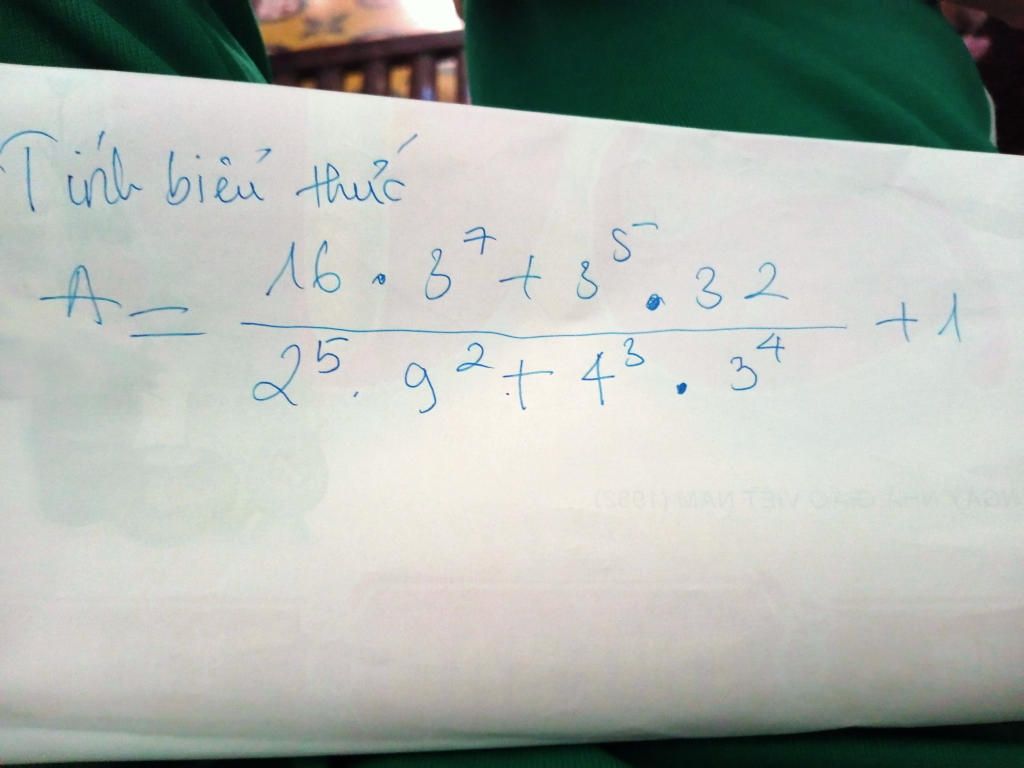 Tính biểu thức
A = \frac{16 . 3^7 + 3^5 . 32}{2^5 . 9^2 + 4^3 . 3^4} + 1
NGÀY NHÀ GIÁO VIỆT NAM (1982)